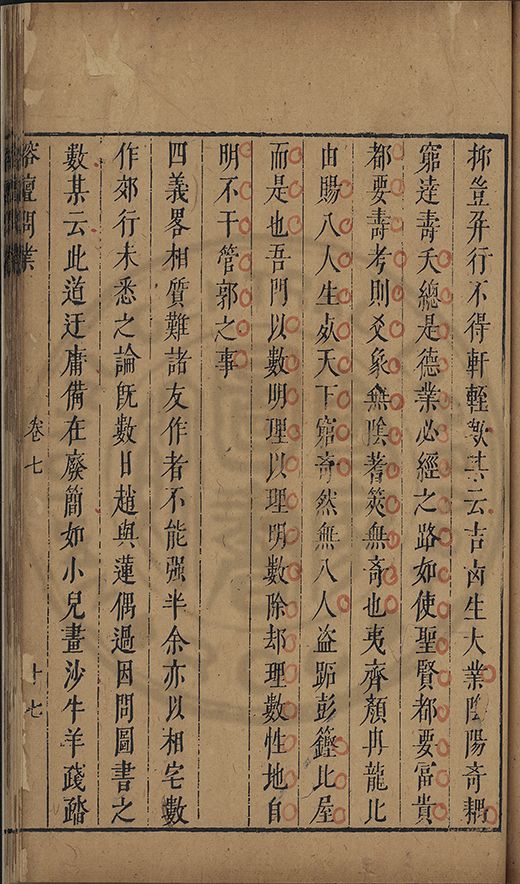 抑豈并行不得軒輊歟某云吉凶生大業陰陽奇耦
窮達壽夭總是德業必經之路如使聖賢都要富貴
都要壽考則爻象無陰蓍筴無奇也夷齊顏冉龍比
由賜八人生䖏天下窮奇然無八人盜跖彭鏗比屋
而是也吾門以數明理以理明數除却理數性地自
明不干管郭之事
四義畧相質難諸友作者不能强半余亦以相宅數
作郊行未悉之論旣數日趙與蓮偶過因問圖書之
數某云此道迂庸備在廢簡如小兒畫沙牛羊踐踏
榕壇問業
卷七
十七